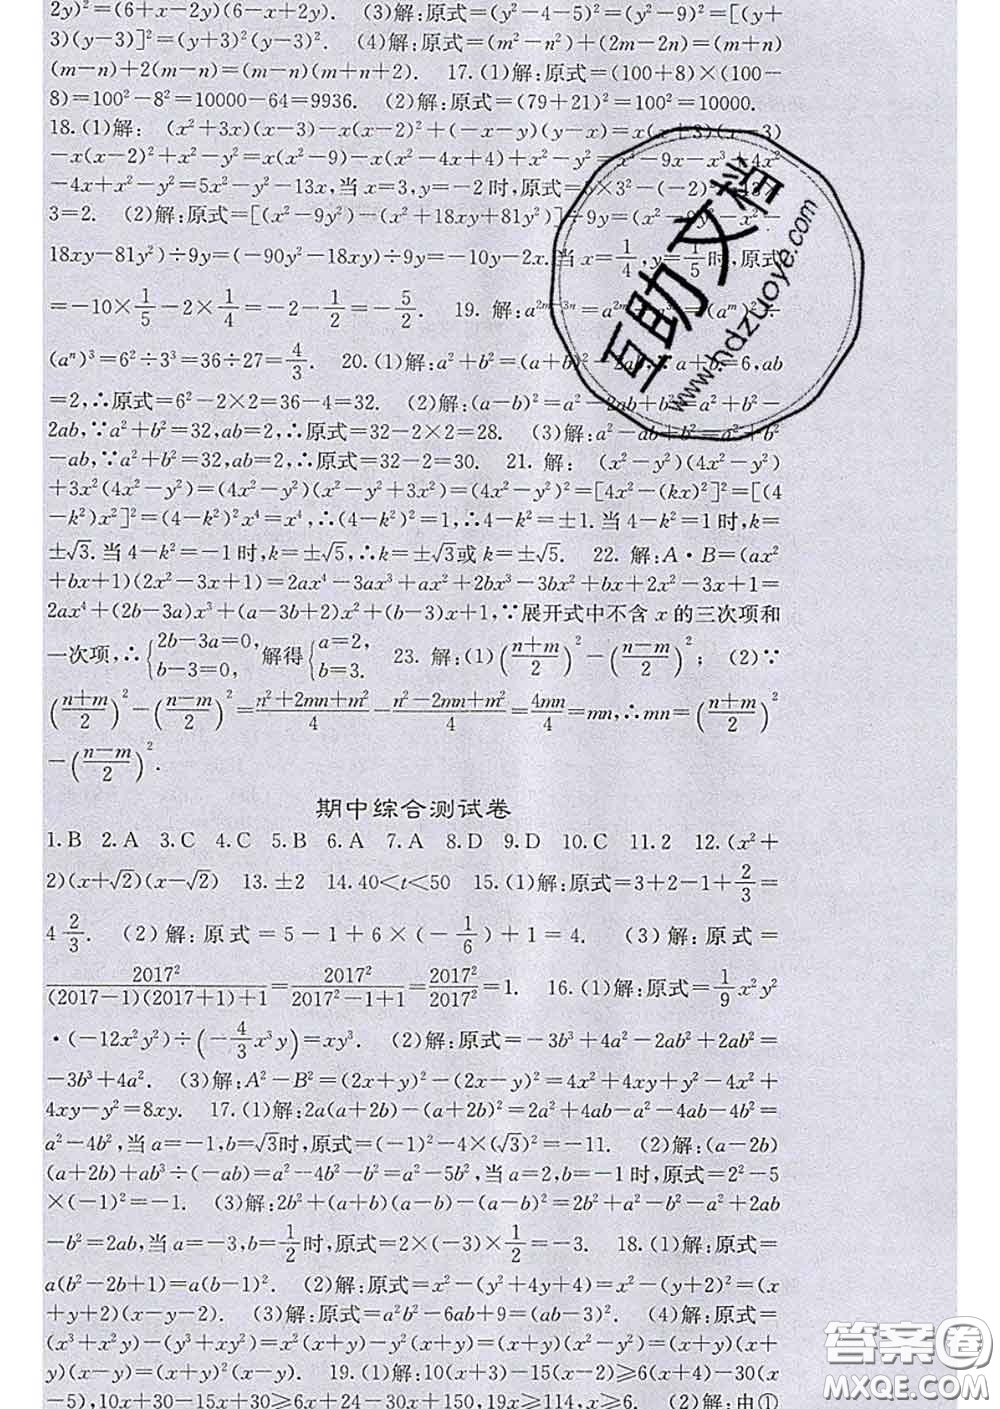 2y)²=(6+x-2y)(6-x+2y).　(3)解:原式=(y²-4-5)²=(y²-9)²=[(y+
3)(y-3)]²=(y+3)²(y-3)².　(4)解:原式=(m²-n²)+(2m-2n)=(m+n)
(m-n)+2(m-n)=(m-n)(m+n+2).　17.(1)解:原式=(100+8)×(100-
8)=100²-8²=10000-64=9936.　(2)解:原式=(79+21)²=100²=10000.
18.(1)解: (x²+3x)(x-3)-x(x-2)²+(-x-y)(y-x)=x(x+3)(x-3)
-x(x-2)²+x²-y²=x(x²-9)-x(x²-4x+4)+x²-y²=x³-9x-x³+4x²
-4x+x²-y²=5x²-y²-13x,当x=3,y=-2时,原式=5×3²-(-2)²-13×
3=2.　(2)解:原式=[(x²-9y²)-(x²+18xy+81y²)]÷9y=(x²-9y²-x²-
18xy-81y²)÷9y=(-90y²-18xy)÷9y=-10y-2x.当x=1/4,y=1/5时,原式
=-10×1/5-2×1/4=-2-1/2=-5/2.　19. 解:a²ᵐ⁻³ⁿ=a²ᵐ÷a³ⁿ=(aᵐ)²÷
(aⁿ)³=6²÷3³=36÷27=4/3.　20.(1)解:a²+b²=(a+b)²-2ab,∵a+b=6,ab
=2,∴原式=6²-2×2=36-4=32.　(2)解:(a-b)²=a²-2ab+b²=a²+b²-
2ab,∵a²+b²=32,ab=2,∴原式=32-2×2=28.　(3)解:a²-ab+b²=a²+b²
-ab,∵a²+b²=32,ab=2,∴原式=32-2=30.　21. 解: (x²-y²)(4x²-y²)
+3x²(4x²-y²)=(4x²-y²)(x²-y²+3x²)=(4x²-y²)²=[4x²-(kx)²]²=[(4
-k²)x²]²=(4-k²)²x⁴=x⁴,∴(4-k²)²=1,∴4-k²=±1.当4-k²=1时,k=
±√3.当4-k²=-1时,k=±√5,∴k=±√3或k=±√5.　22. 解:A·B=(ax²
+bx+1)(2x²-3x+1)=2ax⁴-3ax³+ax²+2bx³-3bx²+bx+2x²-3x+1=
2ax⁴+(2b-3a)x³+(a-3b+2)x²+(b-3)x+1,∵展开式中不含x的三次项和
一次项,∴{2b-3a=0, b-3=0, 解得{a=2, b=3.　23. 解:(1)((n+m)/2)²-((n-m)/2)²; (2)∵
((n+m)/2)²-((n-m)/2)²=(n²+2mn+m²)/4-(n²-2mn+m²)/4=4mn/4=mn,∴mn=((n+m)/2)²
-((n-m)/2)².
期中综合测试卷
1.B　2.A　3.C　4.C　5.B　6.A　7.A　8.D　9.D　10.C　11.2　12.(x²+
2)(x+√2)(x-√2)　13.±2　14.40<t<50　15.(1)解:原式=3+2-1+2/3=
4 2/3.　(2)解:原式=5-1+6×(-1/6)+1=4.　(3)解:原式=
2017²/((2017-1)(2017+1)+1)=2017²/(2017²-1+1)=2017²/2017²=1.　16.(1)解:原式=1/9x²y²
·(-12x²y²)÷(-4/3x³y)=xy³.　(2)解:原式=-3b³+4a²-2ab²+2ab²=
-3b³+4a².　(3)解:A²-B²=(2x+y)²-(2x-y)²=4x²+4xy+y²-4x²+
4xy-y²=8xy.　17.(1)解:2a(a+2b)-(a+2b)²=2a²+4ab-a²-4ab-4b²=
a²-4b²,当a=-1,b=√3时,原式=(-1)²-4×(√3)²=-11.　(2)解:(a-2b)
(a+2b)+ab³÷(-ab)=a²-4b²-b²=a²-5b²,当a=2,b=-1时,原式=2²-5
×(-1)²=-1.　(3)解:2b²+(a+b)(a-b)-(a-b)²=2b²+a²-b²-a²+2ab
-b²=2ab,当a=-3,b=1/2时,原式=2×(-3)×1/2=-3.　18.(1)解:原式=
a(b²-2b+1)=a(b-1)².　(2)解:原式=x²-(y²+4y+4)=x²-(y+2)²=(x
+y+2)(x-y-2).　(3)解:原式=a²b²-6ab+9=(ab-3)².　(4)解:原式=
(x³+x²y)-(y³+xy²)=x²(x+y)-y²(x+y)=(x+y)(x²-y²)=(x+y)(x+
y)(x-y)=(x+y)²(x-y).　19.(1)解:10(x+3)-15(x-2)≥6(x+4)-30(x
-5),10x+30-15x+30≥6x+24-30x+150,19x≥114,x≥6.　(2)解:由①
互助文档
www.hdzuoye.com
答案圈
MXQE.COM